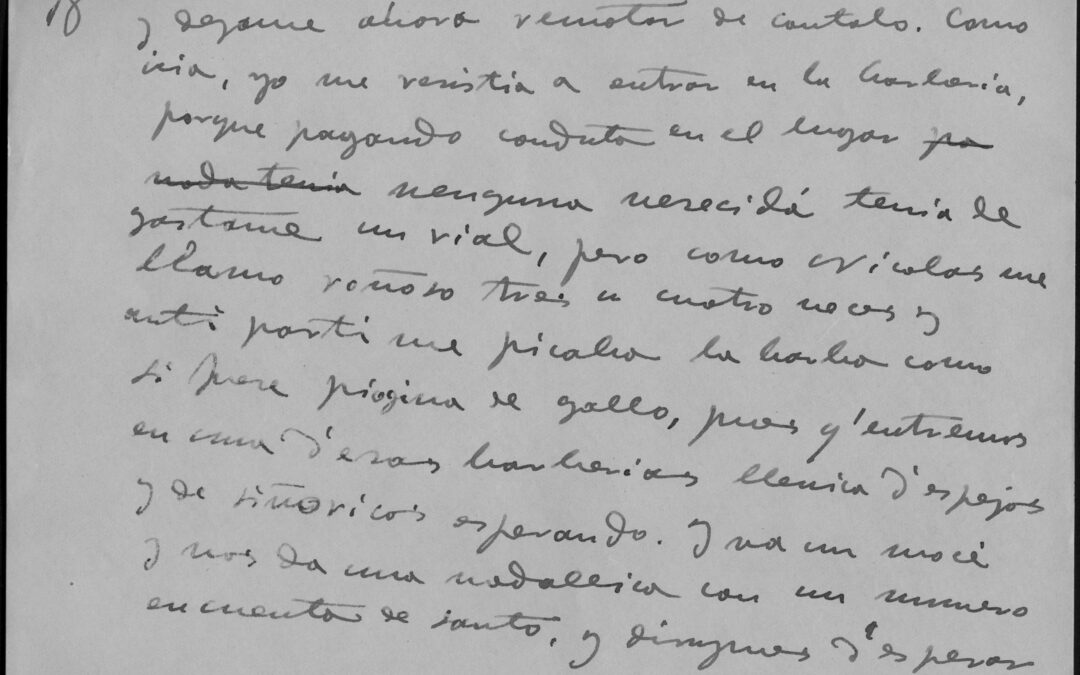 y dejame ahora remotar de contalo. Como
icia, yo me resistia a entrar en la barbería,
porque pagando conduta en el lugar pa
nada tenia nenguna nesecidá tenia de
gastame un rial, pero como Nicolas me
llamo roñoso tres u cuatro veces y
anti parti me picaba la barba como
si fuese piazina de gallo, pues y'entremos
en una d'esas barberias llenica d'espejos
y de siñoricos esperando. Y va un mocé
y nos da una medallica con un numero
en cuenta de santo, y d'esperar